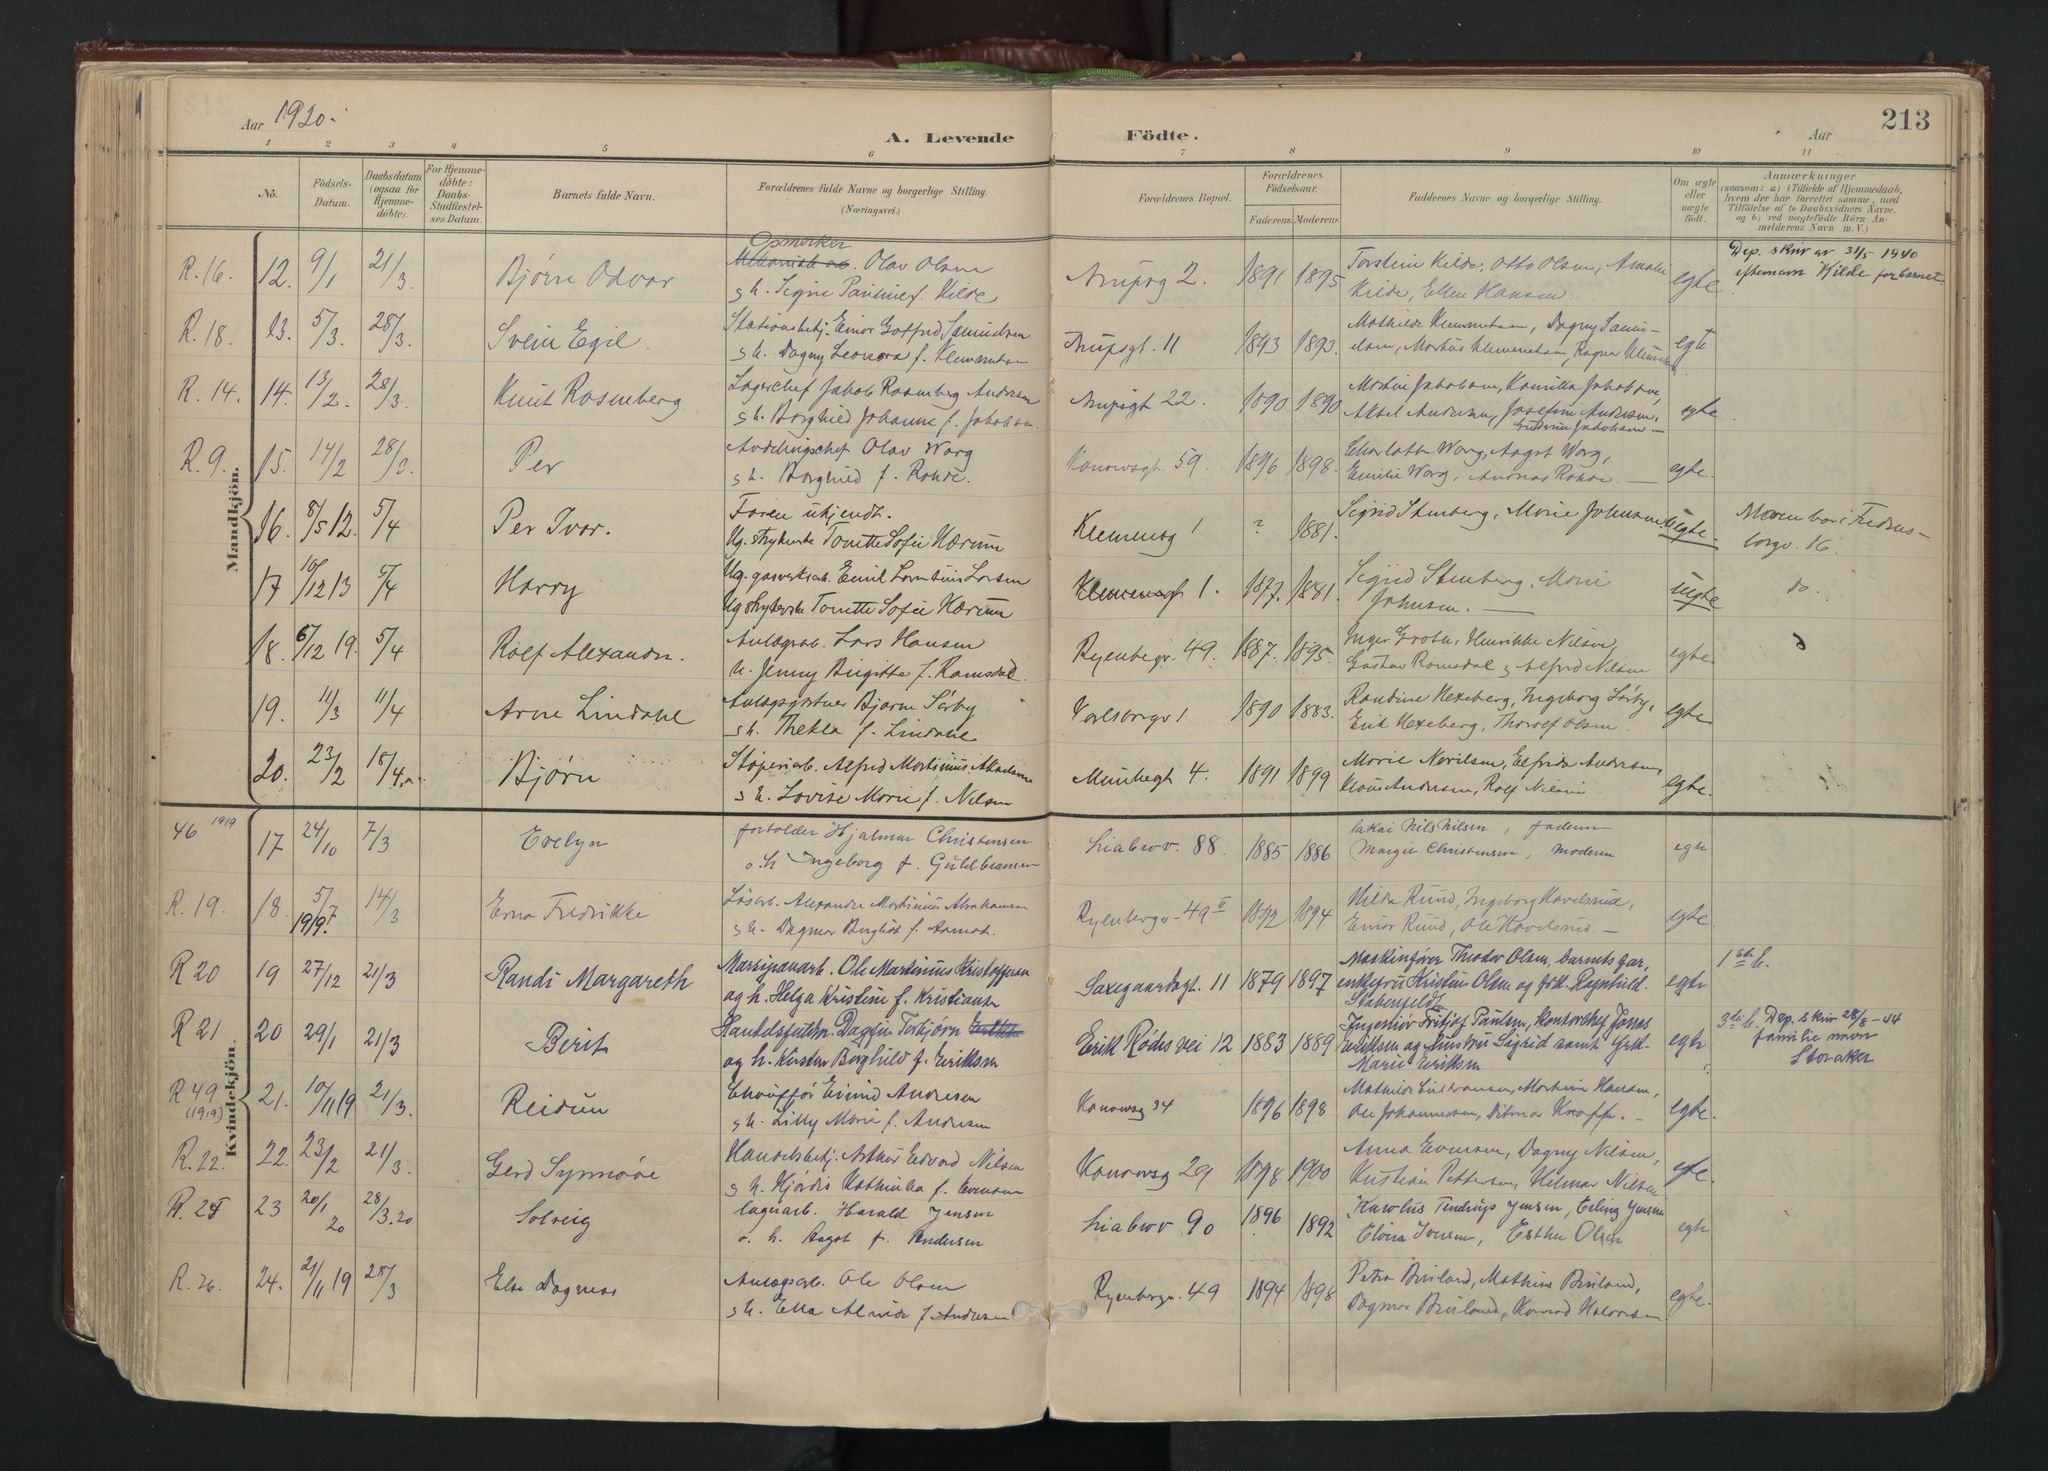 213
Aar 1920.
A. Levende Födte.
Aar
1 2 3 4 5 6 7 8 9 10 11
No.
Födsels-Datum.
Daabsdatum (ogsaa for Hjemmedöbte).
For Hjemmedöbte: Daabs-Stadfæstelses Datum.
Barnets fulde Navn.
Forældrenes fulde Navne og borgerlige Stilling. (Næringsvei.)
Forældrenes Bopæl.
Forældrenes Födselsaar.
Faderens. Moderens.
Faddernes Navne og borgerlige Stilling.
Om ægte eller uægte födt.
Anmærkninger
(saasom: a) i Tilfælde af Hjemmedaab, hvem der har forrettet samme, med Tilföielse af to Daabsvidners Navne. og b) ved uegtefödte Börn Anmelderens Navn m. V.)
Mandkjön.
R. 16. 12. 9/1 21/3. Bjørn Odvar
Opmerker Olav Olsen
og h. Signe Pauline f. Kilde
2. 1891 1895
Torstein Kilde, Otto Olsen, Amalie
Kilde, Ellen Hansen
egte
Dep. skriv av 31/5 1940
efternavn Kilde for barnet
R. 18. 13. 5/3. 28/3. Svein Egil.
Stationsbetj. Einar Gotfred
og h. Dagny Leonora f. Klemmetsen
11 1893 1893.
Mathilde Klemmetsen, Dagny
egte
R. 14. 14. 13/2. 28/3. Knut Rosenberg
Lagerchef Jakob Rosenberg Andresen
og h. Borghild Johanne f. Jakobsen.
22. 1890 1890
Martin Jakobsen, Kamilla Jakobsen,
Aksel Andresen, Josefine Andresen,
egte
R. 9. 15. 14/2 28/3. Per
Avdelingschef Olav Warg
og h. Borghild f. Rohde.
Konowsgt. 59. 1896 1898.
Charlotte Warg, Aagot Warg,
Emilie Warg, Andreas Rohde.
egte.
16. 8/5 12. 5/4 Per Ivar.
Faren ukjendt.
Ug. strykerske Tonette Sofie Hærum
Klemensg 1 ? 1881.
Sigrid Stenberg, Marie Johnsen
uegte.
Moren bor i Fredensborgv. 16.
17 10/12 13 5/4 Harry
Ug. gasverksarb. Emil Larsen
Ug strykerske Tonette Sofie Hærum
Klemensgt 1. 1877. 1881.
Sigrid Stenberg, Marie
Johnsen.
uegte
do.
18. 6/12 19. 5/4 Rolf Alexander.
Anlægsarb. Lars Hansen
h. Jenny Birgitte f. Ramsdal.
Ryenbergv. 49. 1887. 1895.
Henrikke Nilsen,
Gustav Ramsdal og Alfred Nilsen
egte
19. 11/3 11/4 Arne Lindahl
Anlægsgartner Bjarne Sørby
og h. Thekla f. Lindahl.
Karlsborgv 1 1890 1883.
Randine Hexeberg, Ingeborg Sørby,
Erik Hexeberg, Thorolf Olsen
egte
20. 23/2 18/4 Bjørn
Støperiarb. Alfred Martinius
og h. Lovise Marie f. Nilsen
Munkegt 4. 1891 1899
Andersen,
Andersen, Rolf Nilsen
egte.
Kvindekjön.
46 1919 17 24/10 7/3 Evelyn
forvalder Hjalmar Christensen
o. h. Ingeborg f. Guldbransen
Liabrov. 88. 1885 1886
lakai Nils Nilsen, faderen
Margit Christensen, moderen
egte
R. 19. 18. 5/7 1919. 14/3 Erna Fredrikke
Løsarb. Martinius Abrahamsen
og h. Dagmar Bergliot f.
Ryenbergv. 49 II 1892 1894
Hilda Rund, Ingeborg Havelsrud,
Einar Rund, Ole Havelsrud.
egte.
R 20 19 27/12 21/3 Randi Margareth
Marsipanarb. Ole Martinius Kristoffersen
og h. Helga Kristine f. Kristiansen
Saxegaardsgt. 11 1879 1897
Maskinfører Theodor Olsen, barnets far,
enkefru Kristine Olsen og frk. Ragnhild
Stabenfeldt
egte
1ste b.
R 21 20 29/1 21/3 Berit
Handelsfuldm. Dagfin Torbjørn
og h. Kirsten Borghild f. Eriksen
Erik Rødes vei 12 1883 1889
Ingeniør Fritjof Paulsen, kontorchef Jonas
Eriksen og hustru Sigrid samt frk.
Marie Eriksen
egte
3die b. Dep. skriv 28/8-44
familie navn
Storaker
R 49 (1919) 21. 10/11 19 21/3. Reidun
Chauffør Eivind Andresen
og h. Lilly Marie f. Andresen
Konowsg 34 1896 1898
Ole Johannessen, Ditmar Knoff.
egte.
R. 22. 22. 23/2 21/3. Gerd Synnøve
Handelsbetj. Arthur Edvard Nilsen
og h. Hjørdis Kathinka f. Evensen
Konowsg 29 1898 1900
Anna Evensen, Dagny Nilsen,
Kristian Pettersen, Hilmar Nilsen
egte.
23 20/1 20 28/3.20 Solveig
lagerarb. Harald Jensen
o. h. Aagot f. Andersen
Liabrov 90 1896 1892
Karolus Jensen, Erling Jensen
Iversen, Esther Olsen
egte
R. 26. 24. 21/11 19 28/3 Else Dagmar
Anlægsarb. Ole Olsen
og h. Ella Almida f. Andresen
Ryenbergv. 49 1894 1898
Petra Brisland, Mathias Brisland,
Dagmar Brisland, Konrad Halvorsen
egte.